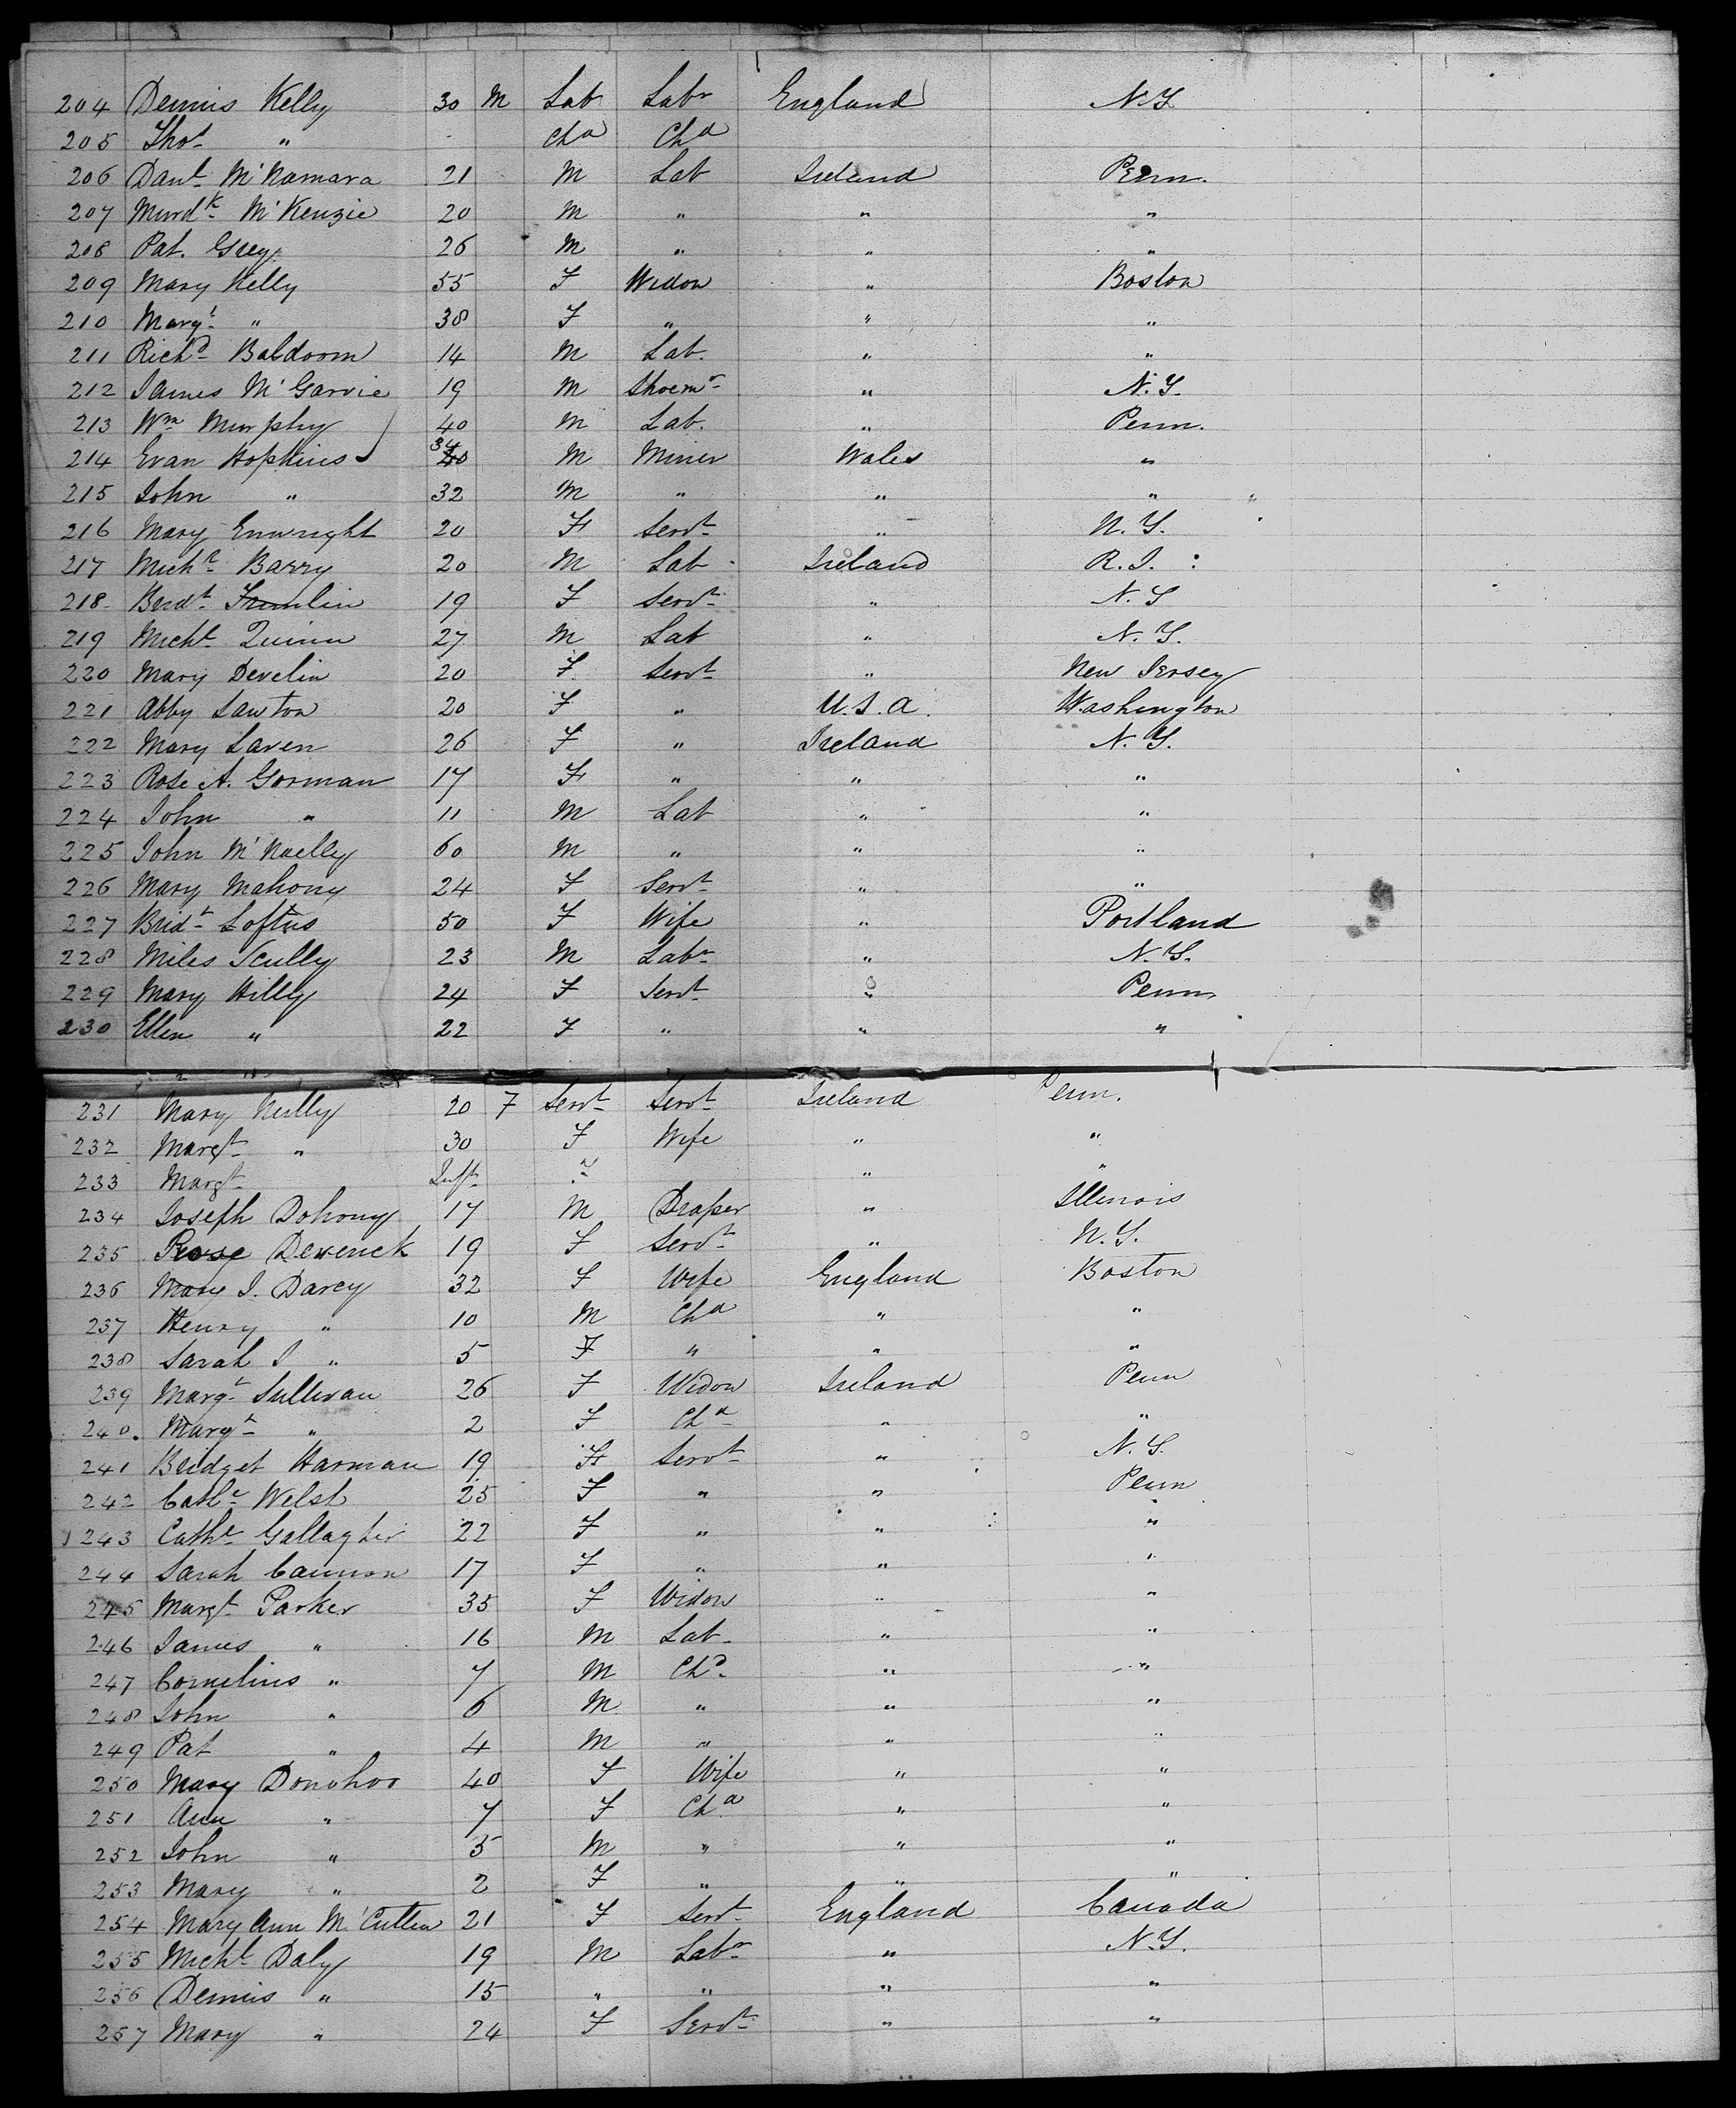 204 Dennis Kelly 30 M Lab Labr England N.Y.
205 Thos " Chd Chd
206 Danl McNamara 21 M Lab Ireland Penn.
207 Murdk McKenzie 20 M " " "
208 Pat. Grey 26 M " " "
209 Mary Kelly 55 F Widow " Boston
210 Margt " 38 F " " "
211 Richd Baldoom 14 M Lab. " "
212 James McGarvie 19 M Shoemr " N.Y.
213 Wm Murphy 40 M Lab. " Penn.
214 Evan Hopkins 34 M Miner Wales "
215 John " 32 M " " " "
216 Mary Enwright 20 F Servt " N.Y.
217 Michl Barry 20 M Lab Ireland R.I.
218 Bridt 19 F Servt " N.Y
219 Michl Quinn 27 M Lab " N.Y.
220 Mary Develin 20 F Servt " New Jersey
221 Abby Lawton 20 F " U.S.A. Washington
222 Mary Laven 26 F " Ireland N.Y.
223 Rose A. Gorman 17 F " " "
224 John " 11 M Lab " "
225 John McNaelly 60 M " " "
226 Mary Mahony 24 F Servt " "
227 Bridt Loftus 50 F Wife " Portland
228 Miles Scully 23 M Labr " N.Y.
229 Mary Hilly 24 F Servt " Penn
230 Ellen " 22 F " " "
231 Mary 20 F Servt Servt Ireland Penn.
232 Margt " 30 F Wife " "
233 Margt Inft " " "
234 Joseph Dohony 17 M Draper " Illinois
235 Rose Deverick 19 F Servt " N.Y.
236 Mary J. Darcy 32 F Wife England Boston
237 Henry " 10 M Chd " "
238 Sarah J " 5 F " " "
239 Margt Sullivan 26 F Widow Ireland Penn
240. Margt " 2 F Chd " "
241 Bridget Harman 19 F Servt " N.Y.
242 Cathe Welsh 25 F " " Penn
243 Cathe Gallagher 22 F " " "
244 Sarah Cannon 17 F " " "
245 Margt Parker 35 F Widow " "
246 James " 16 M Lab " "
247 Cornelius " 7 M Chd " "
248 John " 6 M " " "
249 Pat " 4 M " " "
250 Mary Donohoo 40 F Wife " "
251 Ann " 7 F Chd " "
252 John " 5 M " " "
253 Mary " 2 F " " "
254 Mary Ann McCutten 21 F Servt England Canada
255 Michl Daly 19 M Labr " N.Y.
256 Dennis " 15 " " " "
257 Mary " 24 F Servt " "